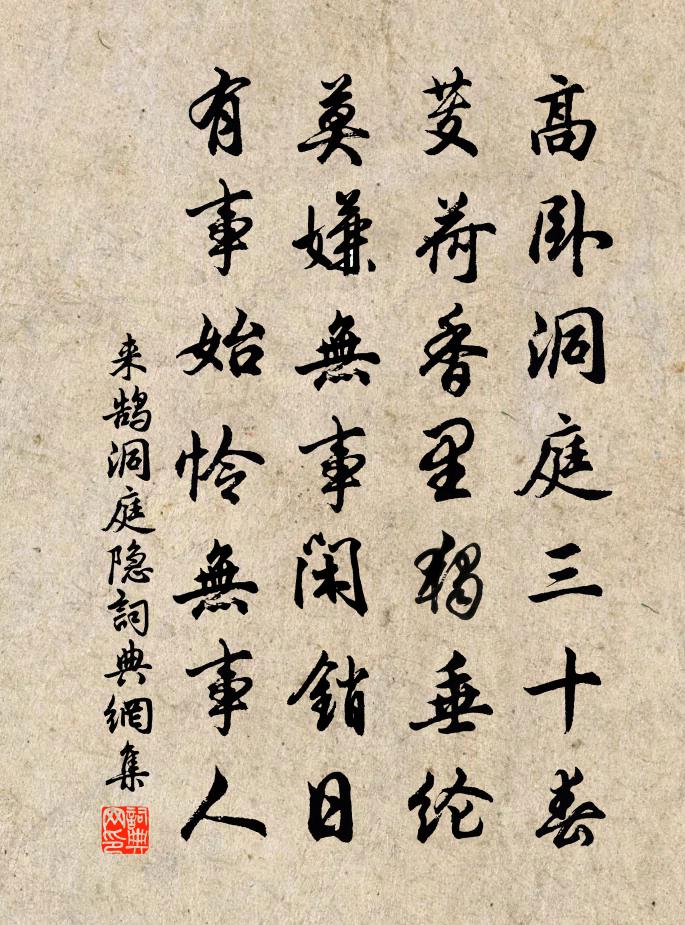 高卧洞庭三十春
芰荷香里獨垂纶
莫嫌無事閑銷日
有事始怜無事人
来鹄洞庭隐詞典網集
詞典网印